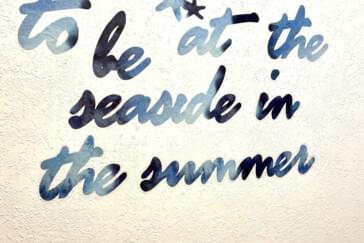 to be at the
seaside in
the summer